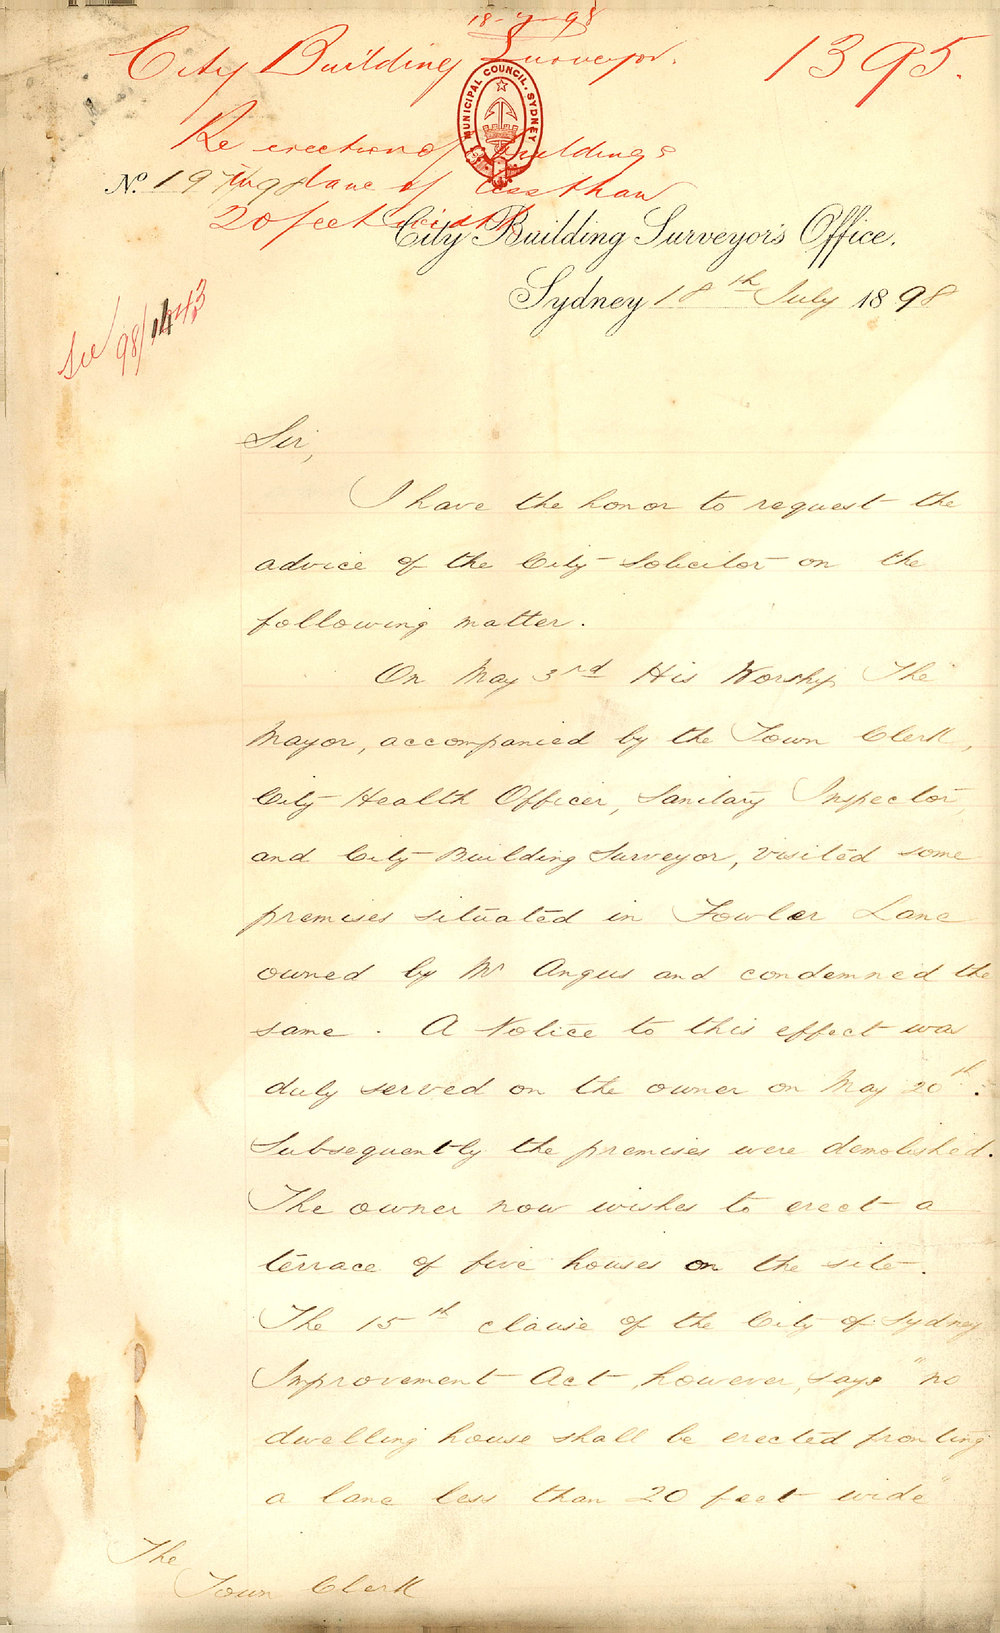 18-7-98
City Building Surveyor. 1395.
MUNICIPAL COUNCIL. SYDNEY
Re erection of buildings
No. 197/98
in a lane of less than
20 feet width
City Building Surveyor's Office.
Sydney 18th July 1898
See
98/1443
Sir,
I have the honor to request the
advice of the City Solicitor on the
following matter.
On May 3rd His Worship The
Mayor, accompanied by the Town Clerk,
City Health Officer, Sanitary Inspector,
and City Building Surveyor, visited some
premises situated in Fowler Lane
owned by Mr Angus and condemned the
same. A Notice to this effect was
duly served on the owner on May 20th.
Subsequently the premises were demolished.
The owner now wishes to erect a
terrace of five houses on the site.
The 15th clause of the City of Sydney
Improvement Act, however, says "no
dwelling house shall be erected fronting
a lane less than 20 feet wide"
The
Town Clerk